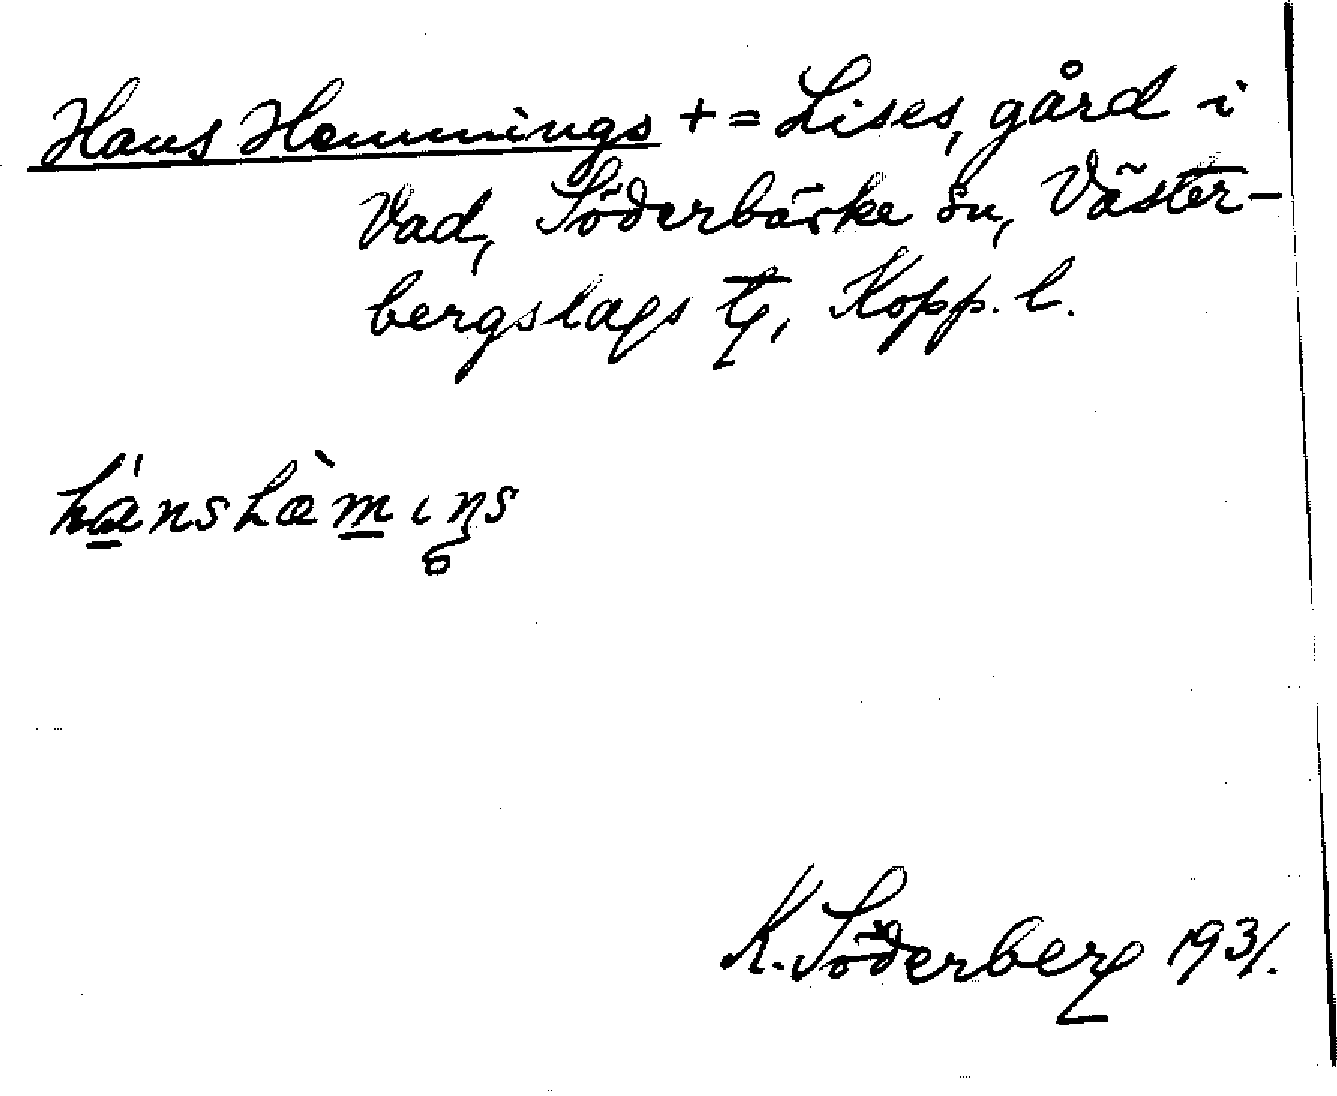 Hans Hemmings + = Lises, gård i
Vad, Söderbärke sn, Väster-
bergslags tg, Kopp. l.
hánshæ̀mıŋs
K. Söderberg 1931.